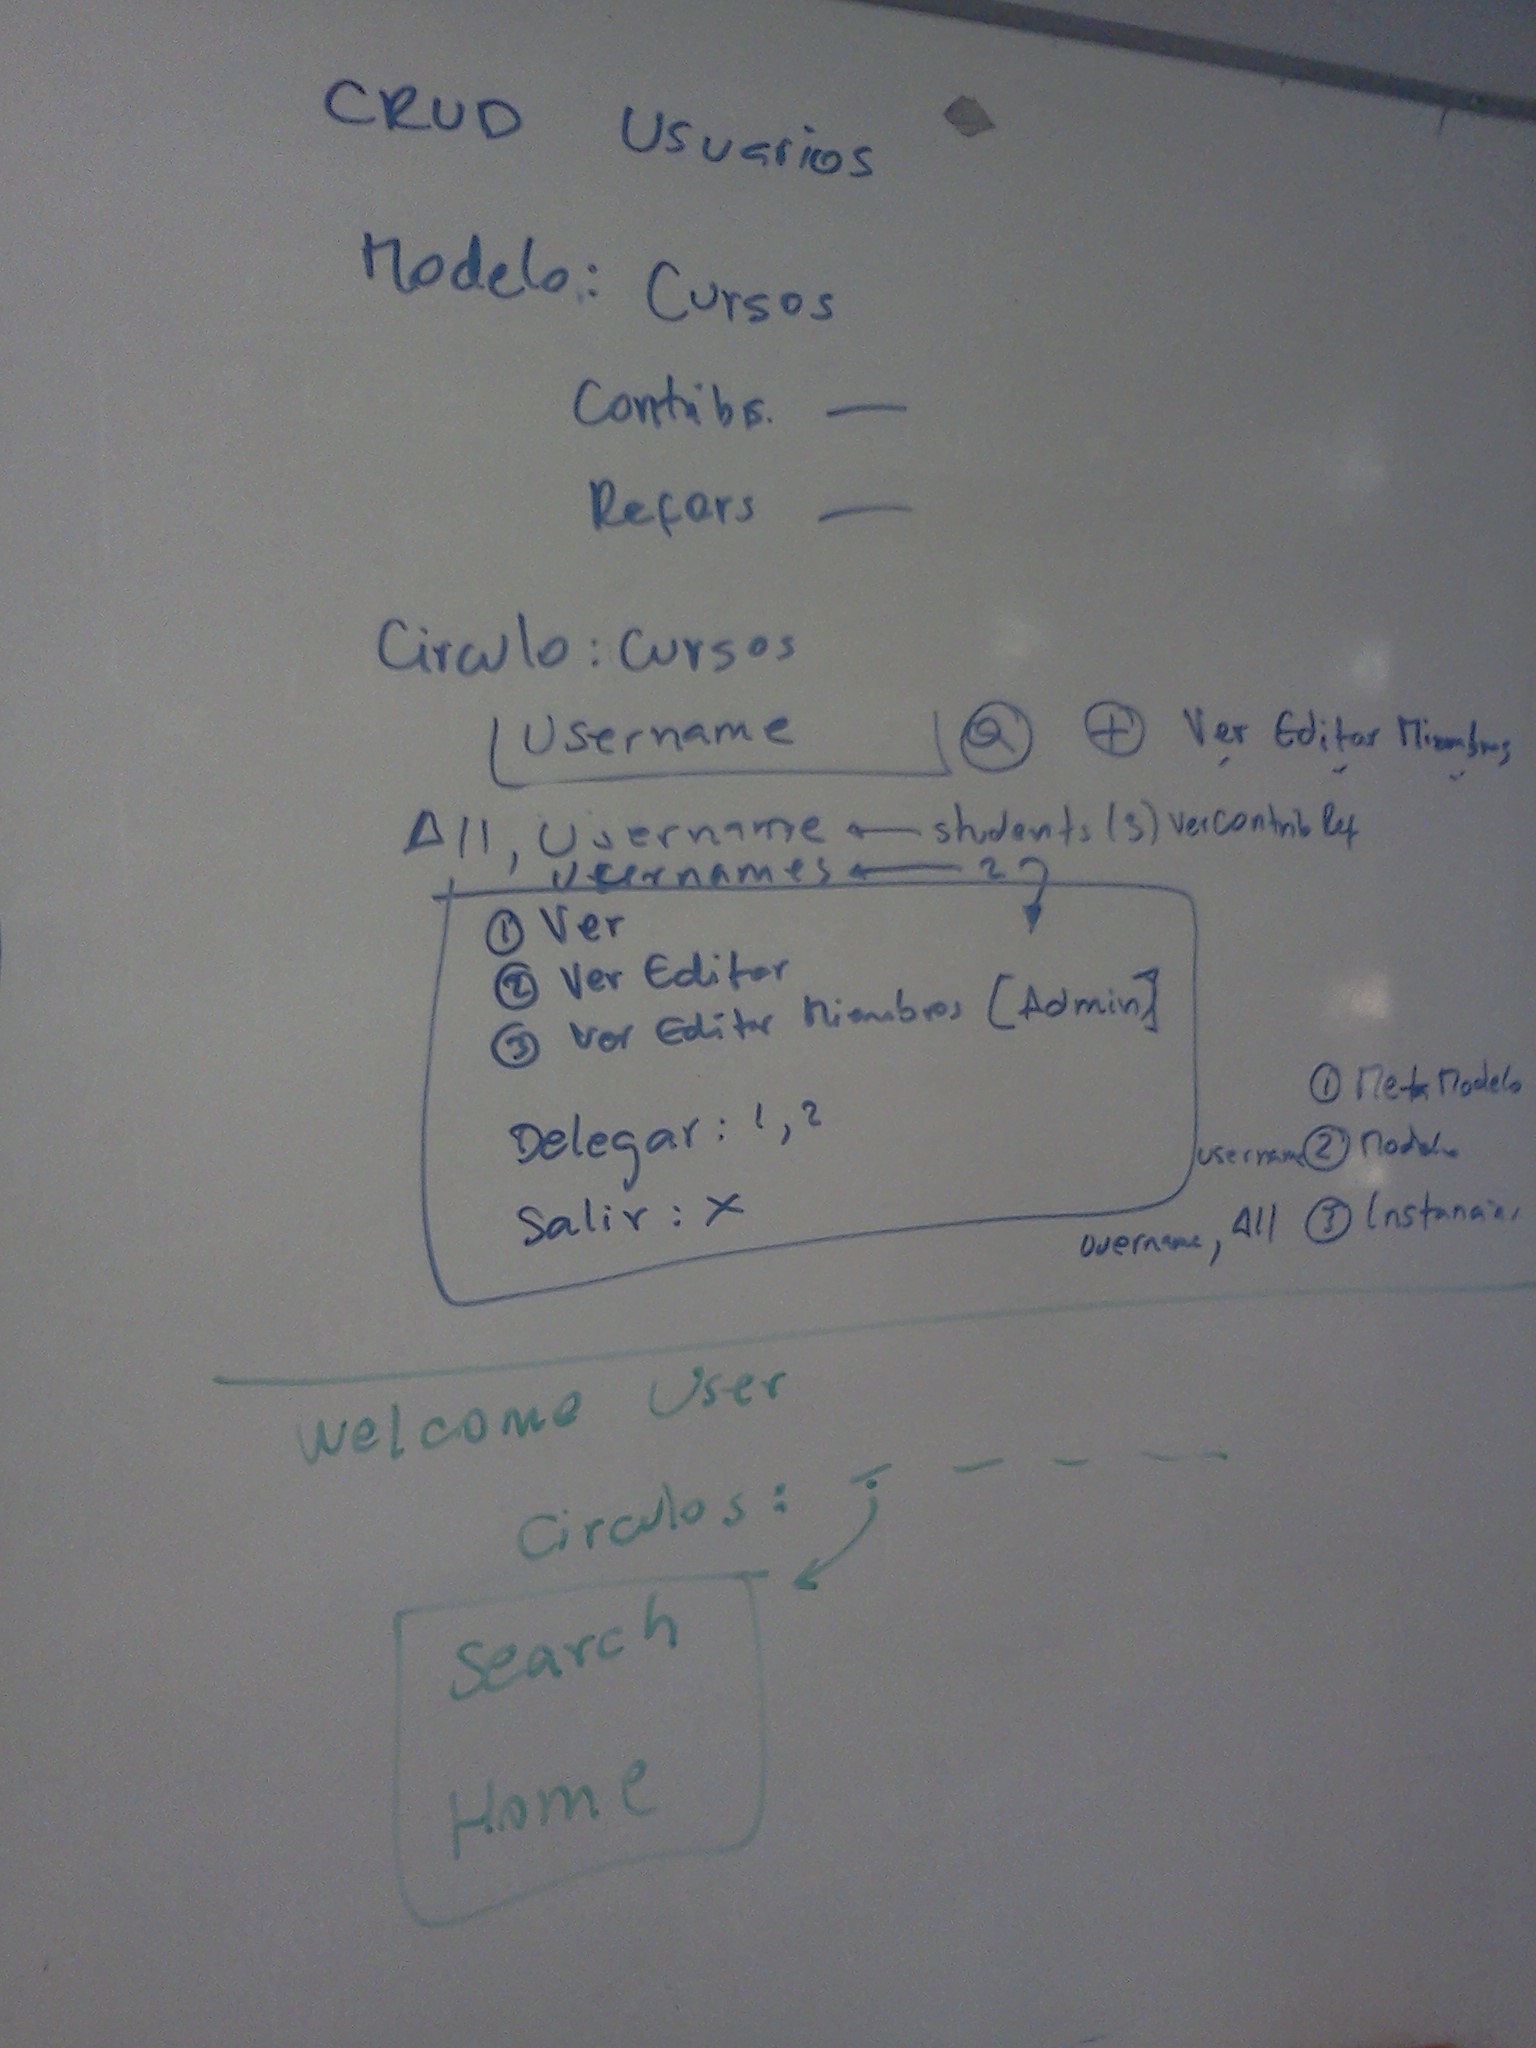 CRUD Usuarios
Modelo: Cursos
Contribs. —
Refors —
Circulo: Cursos
Username Q + Ver Editar Miembros
All, Username ← students (3) ver contrib Ref
usernames ← 2
① Ver
② Ver Editar
③ Ver Editar Miembros [Admin]
Delegar: 1, 2
Salir: X
① Meta Modelo
username ② Modelo
username, All ③ Instancias
Welcome User
Circulos: — — — — —
Search
Home